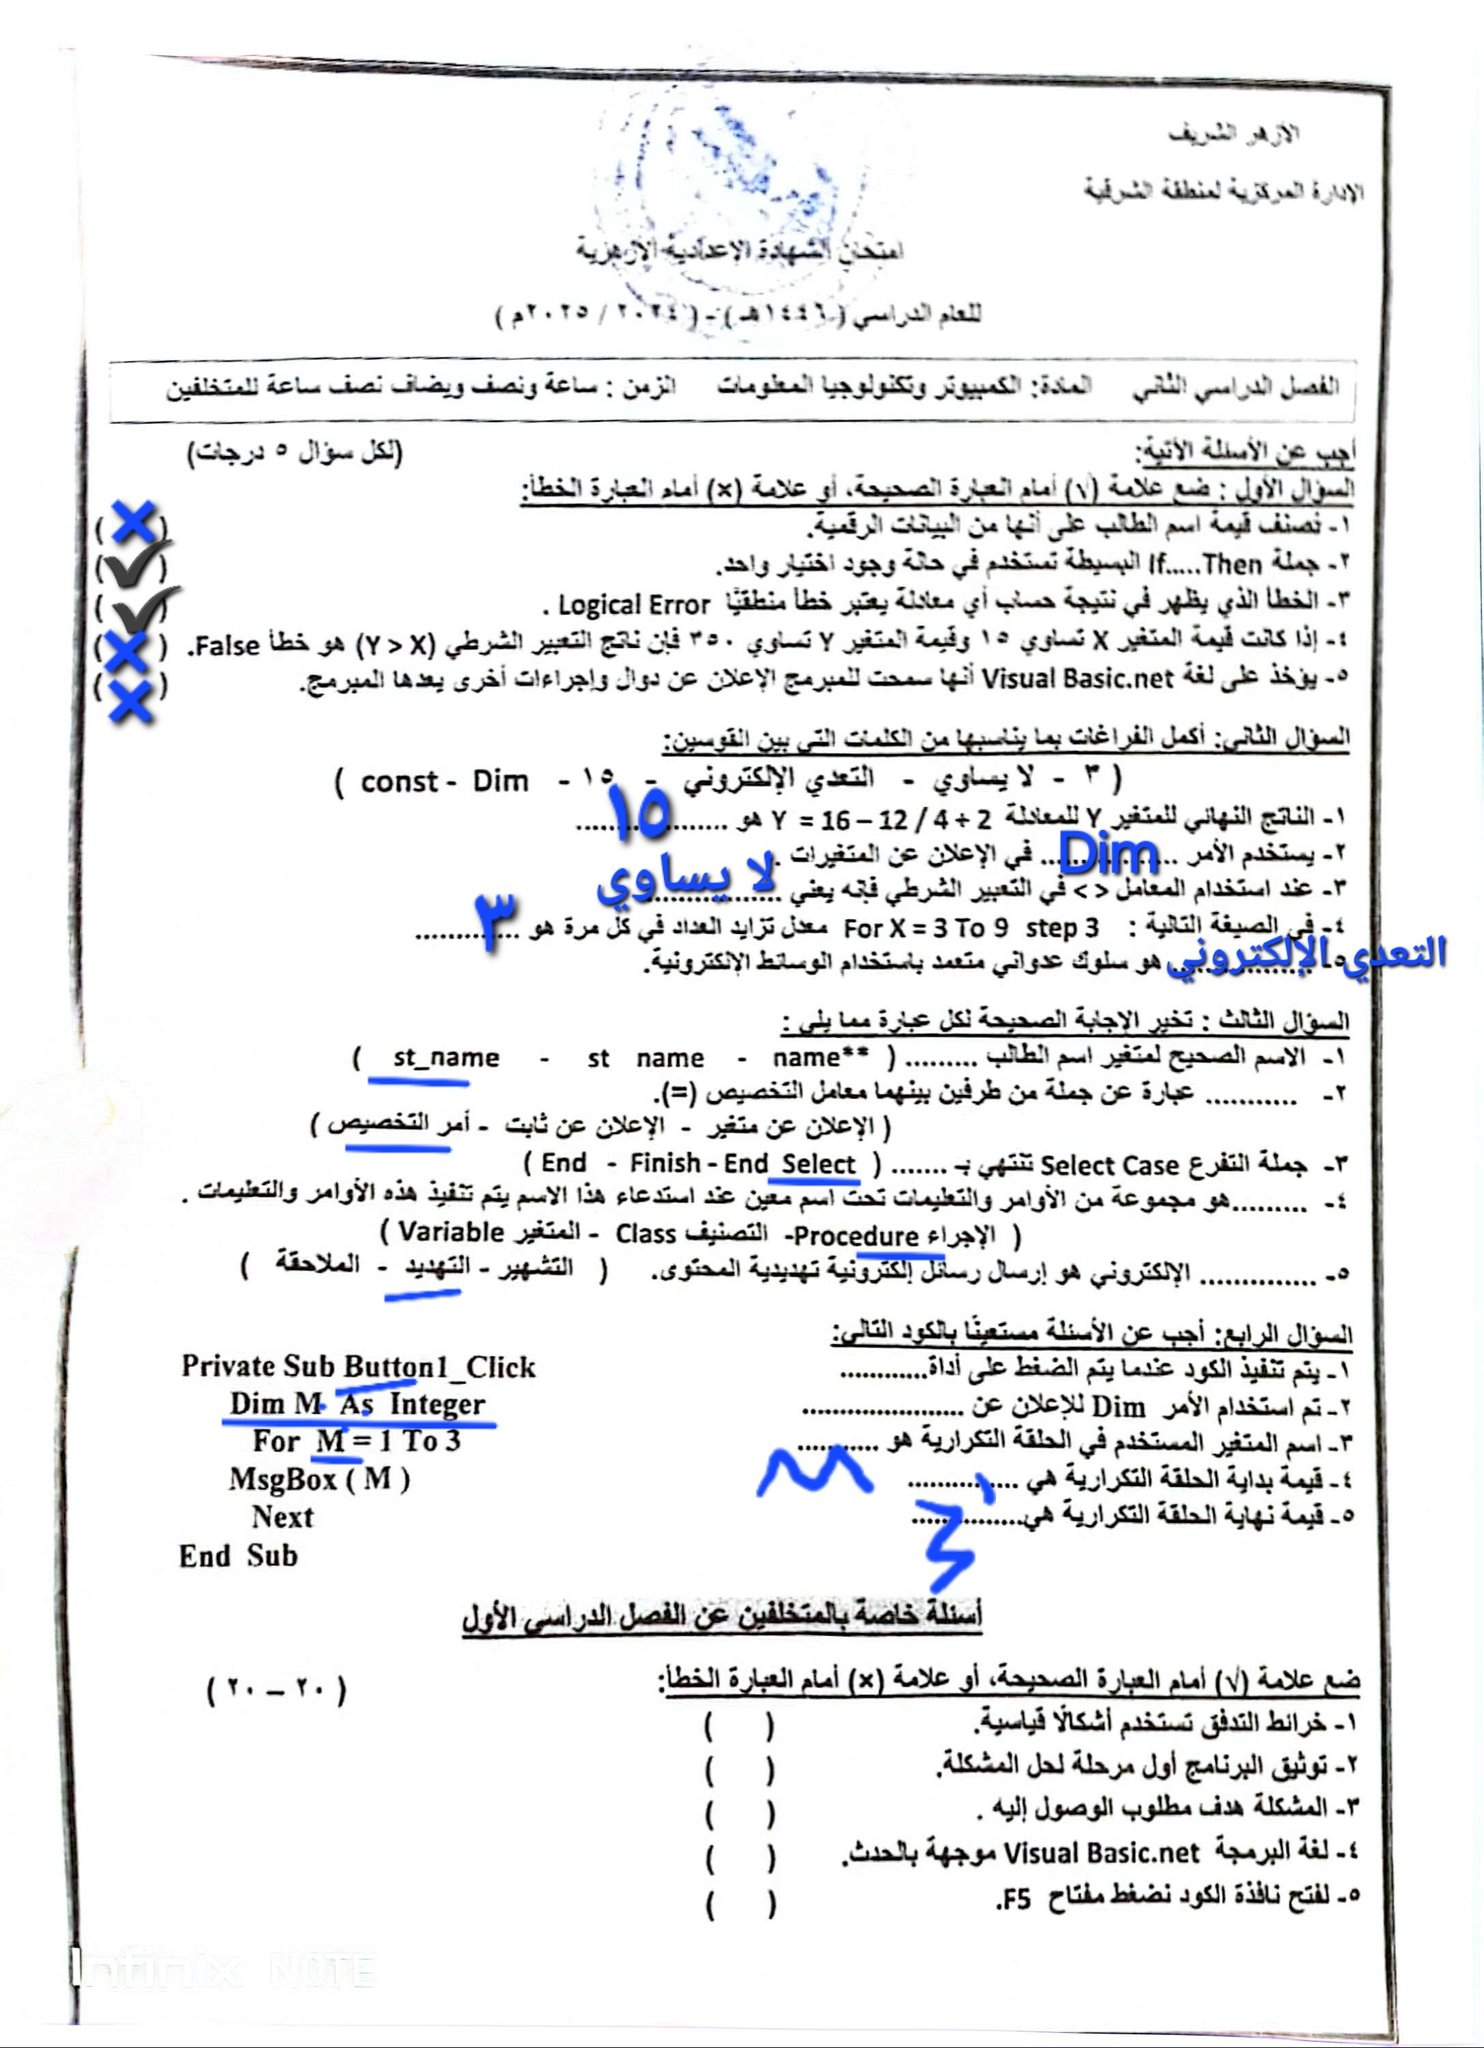 الأزهر الشريف
الإدارة المركزية لمنطقة الشرقية
امتحان الشهادة الإعدادية الأزهرية
للعام الدراسي ( ١٤٤٦هـ ) - ( ٢٠٢٤ / ٢٠٢٥م )
الفصل الدراسي الثاني المادة: الكمبيوتر وتكنولوجيا المعلومات الزمن : ساعة ونصف ويضاف نصف ساعة للمتخلفين
أجب عن الأسئلة الآتية: (لكل سؤال ٥ درجات)
السؤال الأول : ضع علامة (√) أمام العبارة الصحيحة، أو علامة (×) أمام العبارة الخطأ:
١- تصنف قيمة اسم الطالب على أنها من البيانات الرقمية. ( ❌ )
٢- جملة If.....Then البسيطة تستخدم في حالة وجود اختيار واحد. ( ✔ )
٣- الخطأ الذي يظهر في نتيجة حساب أي معادلة يعتبر خطأ منطقيًا Logical Error . ( ✔ )
٤- إذا كانت قيمة المتغير X تساوي ١٥ وقيمة المتغير Y تساوي ٣٥٠ فإن ناتج التعبير الشرطي (Y > X) هو خطأ False. ( ❌ )
٥- يؤخذ على لغة Visual Basic.net أنها سمحت للمبرمج الإعلان عن دوال وإجراءات أخرى يعدها المبرمج. ( ❌ )
السؤال الثاني: أكمل الفراغات بما يناسبها من الكلمات التي بين القوسين:
( ٣ - لا يساوي - التعدي الإلكتروني - ١٥ - const - Dim )
١- الناتج النهائي للمتغير Y للمعادلة Y = 16 – 12 / 4 + 2 هو .................. ١٥
٢- يستخدم الأمر ................. في الإعلان عن المتغيرات . Dim
٣- عند استخدام المعامل < > في التعبير الشرطي فإنه يعني ................. لا يساوي
٤- في الصيغة التالية : For X = 3 To 9 step 3 معدل تزايد العداد في كل مرة هو ............. ٣
٥- ................. هو سلوك عدواني متعمد باستخدام الوسائط الإلكترونية. التعدي الإلكتروني
السؤال الثالث : تخير الإجابة الصحيحة لكل عبارة مما يلي :
١- الاسم الصحيح لمتغير اسم الطالب ......... ( st_name - st name - name** )
٢- ........... عبارة عن جملة من طرفين بينهما معامل التخصيص (=).
( الإعلان عن متغير - الإعلان عن ثابت - أمر التخصيص )
٣- جملة التفرع Select Case تنتهي بـ ....... ( End - Finish - End Select )
٤- .........هو مجموعة من الأوامر والتعليمات تحت اسم معين عند استدعاء هذا الاسم يتم تنفيذ هذه الأوامر والتعليمات .
( الإجراء Procedure- التصنيف Class - المتغير Variable )
٥- .............. الإلكتروني هو إرسال رسائل إلكترونية تهديدية المحتوى. ( التشهير - التهديد - الملاحقة )
السؤال الرابع: أجب عن الأسئلة مستعينًا بالكود التالي:
١- يتم تنفيذ الكود عندما يتم الضغط على أداة............
٢- تم استخدام الأمر Dim للإعلان عن ......................
٣- اسم المتغير المستخدم في الحلقة التكرارية هو ........... M
٤- قيمة بداية الحلقة التكرارية هي ............... ١
٥- قيمة نهاية الحلقة التكرارية هي............... 3
Private Sub Button1_Click
Dim M As Integer
For M = 1 To 3
MsgBox ( M )
Next
End Sub
أسئلة خاصة بالمتخلفين عن الفصل الدراسي الأول
ضع علامة (√) أمام العبارة الصحيحة، أو علامة (×) أمام العبارة الخطأ: ( ٢٠ – ٢٠ )
١- خرائط التدفق تستخدم أشكالًا قياسية. ( )
٢- توثيق البرنامج أول مرحلة لحل المشكلة. ( )
٣- المشكلة هدف مطلوب الوصول إليه . ( )
٤- لغة البرمجة Visual Basic.net موجهة بالحدث. ( )
٥- لفتح نافذة الكود نضغط مفتاح F5. ( )
Infinix NOTE